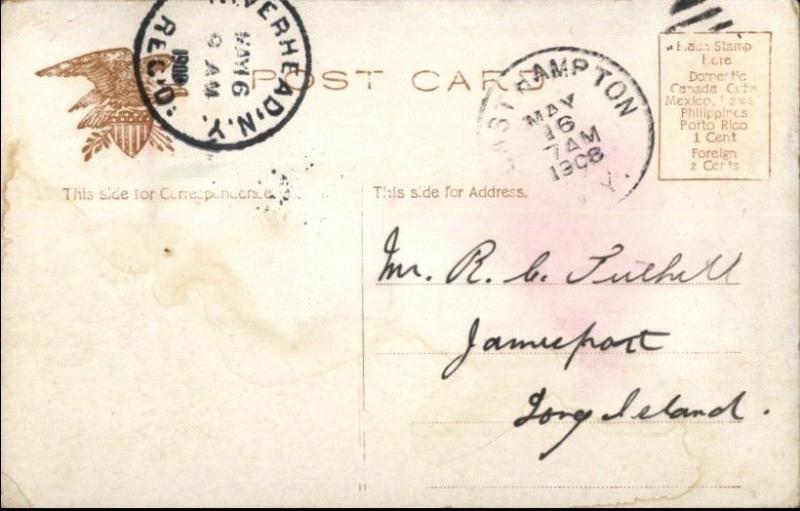 RIVERHEAD, N.Y.
MAY 16
9 AM
1908
REC'D.
POST CARD
EAST HAMPTON
MAY
16
7 AM
1908
N.Y.
Place Stamp
Here
Domestic
Canada, Cuba
Mexico, Hawaii
Philippines
Porto Rico
1 Cent
Foreign
2 Cents
This side for Correspondence
This side for Address.
Mr. R. C. Tuthill
Jamesport
Long Island.